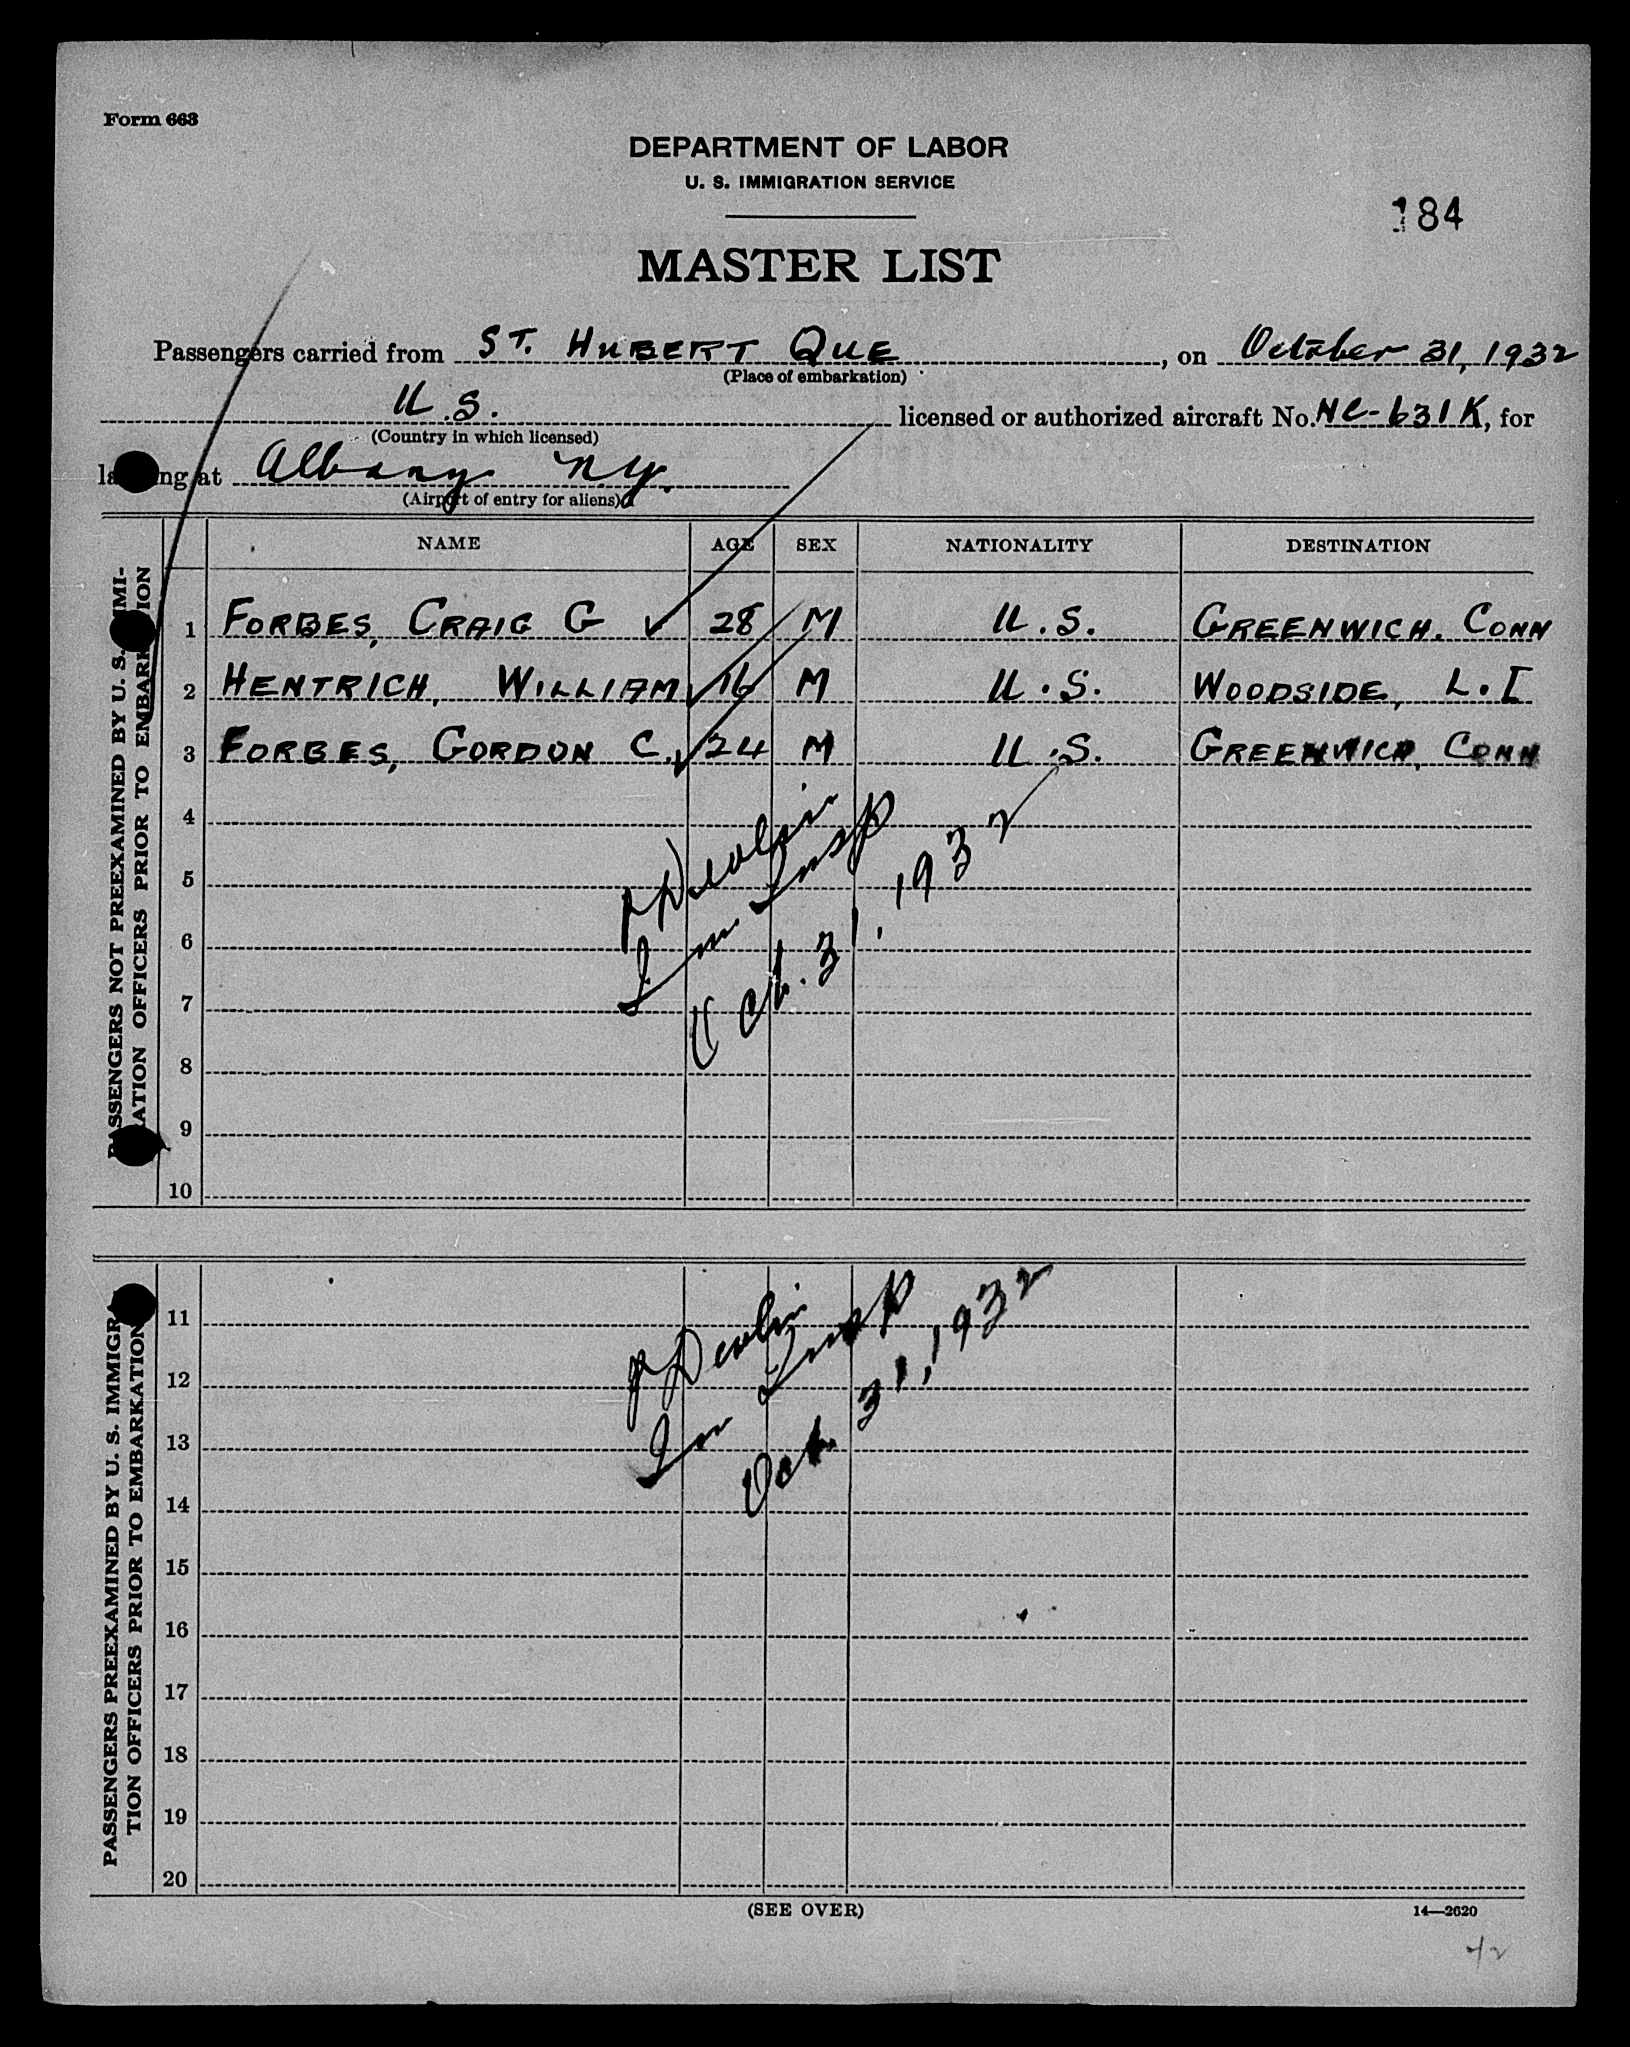 Form 663
DEPARTMENT OF LABOR
U. S. IMMIGRATION SERVICE
184
MASTER LIST
Passengers carried from ST. HUBERT QUE, on October 31, 1932
(Place of embarkation)
U.S. licensed or authorized aircraft No. NC-631K, for
(Country in which licensed)
la ng at Albany N.Y.
(Airport of entry for aliens)
NAME AGE SEX NATIONALITY DESTINATION
PASSENGERS NOT PREEXAMINED BY U. S. IMMI-
RATION OFFICERS PRIOR TO EMBARKATION
1 FORBES, CRAIG G ✓ 28 M U.S. GREENWICH. CONN
2 HENTRICH, WILLIAM ✓ 16 M U.S. WOODSIDE, L.I
3 FORBES, GORDON C. ✓ 24 M U.S. GREENWICH, CONN
4
5
6
7
8
9
10
P Devlin
Im Insp
Oct. 31, 1932
PASSENGERS PREEXAMINED BY U. S. IMMIGRA-
TION OFFICERS PRIOR TO EMBARKATION
11
12
13
14
15
16
17
18
19
20
P Devlin
Im Insp
Oct 31, 1932
(SEE OVER)
14—2620
42